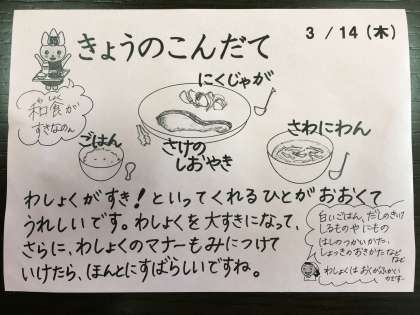 3 / 14 (木)
きょうのこんだて
わしょく
和食が
すきなのん
にくじゃが
ごはん
さけの
しおやき
さわにわん
わしょくがすき！といってくれるひとがおおくて
うれしいです。わしょくを大すきになって、
さらに、わしょくのマナーもみにつけて
いけたら、ほんとにすばらしいですね。
白いごはん、だしのきいた
しるものやにもの
はしのつかいかた、
しょっきのおきかたなど
など
わしょくはおくがふかい
のです…